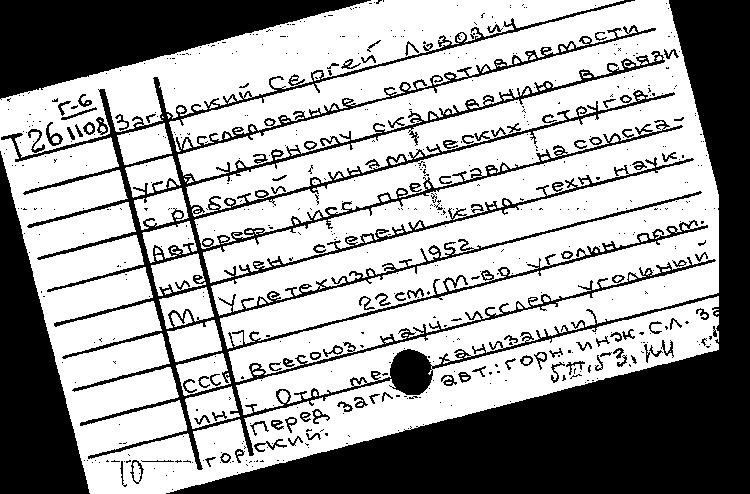 Г-6
Т261108
Загорский, Сергей Львович
Исследование сопротивляемости
угля ударному скалыванию в связи
с работой динамических стругов.
Автореф. дисс., представл. на соиска-
ние учен. степени канд. техн. наук.
М., Углетехиздат, 1952.
22 см. (М-во уголин. пром.
СССР. Всесоюз. науч.-исслед. угольный
ин-т. Отд. ме ханизации).
Перед загл. авт.: горн. инж. С.Л. За
горский.
5.III.53.
10